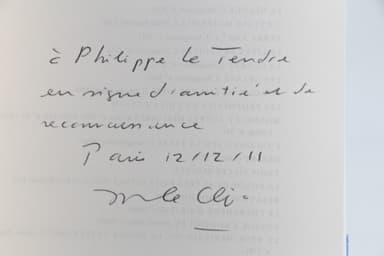 à Philippe le Tendre
en signe d'amitié et de
reconnaissance
Paris 12/12/11